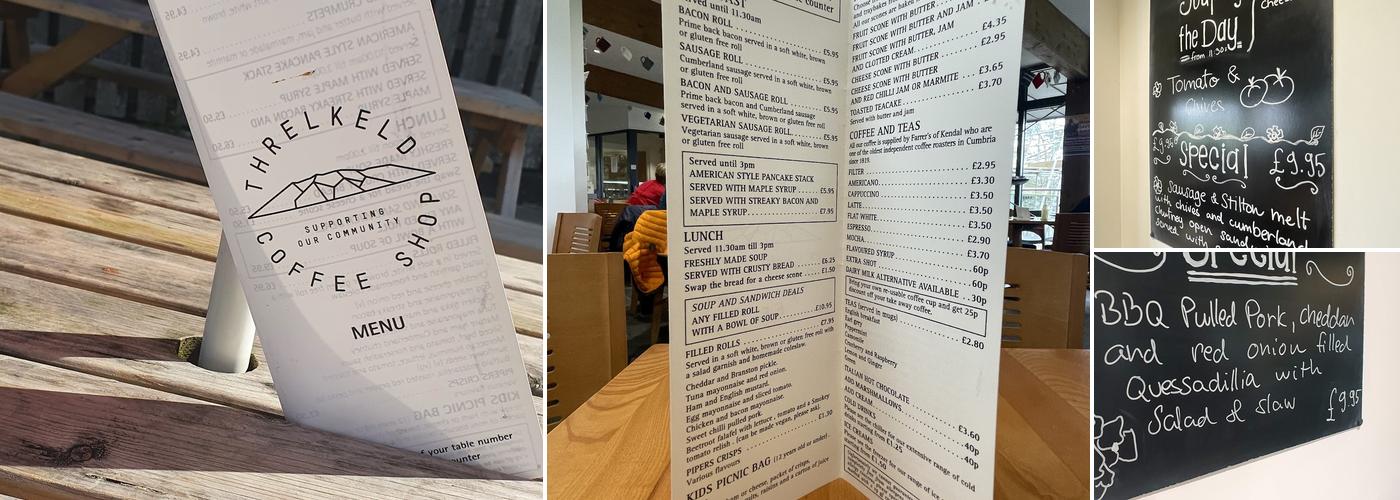 THRELKELD
SUPPORTING
OUR COMMUNITY
COFFEE SHOP
MENU
your table number
counter
Served until 11.30am
BACON ROLL
Prime back bacon served in a soft white, brown
or gluten free roll £5.95
SAUSAGE ROLL
Cumberland sausage served in a soft white, brown
or gluten free roll £5.95
BACON AND SAUSAGE ROLL
Prime back bacon and Cumberland sausage
served in a soft white, brown or gluten free roll £5.95
VEGETARIAN SAUSAGE ROLL £5.95
Vegetarian sausage served in a soft white, brown
or gluten free roll
Served until 3pm
AMERICAN STYLE PANCAKE STACK
SERVED WITH MAPLE SYRUP £5.95
SERVED WITH STREAKY BACON AND
MAPLE SYRUP £7.95
LUNCH
Served 11.30am till 3pm
FRESHLY MADE SOUP
SERVED WITH CRUSTY BREAD £6.25
Swap the bread for a cheese scone £1.50
SOUP AND SANDWICH DEALS
ANY FILLED ROLL
WITH A BOWL OF SOUP £10.95
FILLED ROLLS £7.95
Served in a soft white, brown or gluten free roll with
a salad garnish and homemade coleslaw.
Cheddar and Branston pickle.
Tuna mayonnaise and red onion.
Ham and English mustard.
Egg mayonnaise and sliced tomato.
Chicken and bacon mayonnaise.
Sweet chilli pulled pork.
Beetroot falafel with lettuce, tomato and a Smokey
tomato relish - (can be made vegan, please ask).
PIPERS CRISPS £1.30
Various flavours
KIDS PICNIC BAG (12 years old or under).
or cheese, packet of crisps,
raisins and a carton of juice
All our scones are baked
FRUIT SCONE WITH BUTTER
FRUIT SCONE WITH BUTTER AND JAM
FRUIT SCONE WITH BUTTER, JAM
AND CLOTTED CREAM £4.35
CHEESE SCONE WITH BUTTER £2.95
CHEESE SCONE WITH BUTTER
AND RED CHILLI JAM OR MARMITE £3.65
TOASTED TEACAKE £3.70
Served with butter and jam
COFFEE AND TEAS
All our coffee is supplied by Farrer's of Kendal who are
one of the oldest independent coffee roasters in Cumbria
since 1819.
FILTER £2.95
AMERICANO £3.30
CAPPUCCINO £3.50
LATTE £3.50
FLAT WHITE £3.50
ESPRESSO £2.90
MOCHA £3.70
FLAVOURED SYRUP 60p
EXTRA SHOT 60p
DAIRY MILK ALTERNATIVE AVAILABLE 30p
Bring your own re-usable coffee cup and get 25p
discount off your take away coffee.
TEAS (served in mugs) £2.80
English breakfast
Earl grey
Peppermint
Camomile
Cranberry and Raspberry
Lemon and Ginger
Green
ITALIAN HOT CHOCOLATE £3.60
ADD MARSHMALLOWS 40p
ADD CREAM 40p
COLD DRINKS
Please see the chiller for our extensive range of cold
drinks starting from £1.25
ICE CREAMS
Please see the freezer for our range of ice
Soup of
the Day
from 11:30
Tomato &
Chives
Special £9.95
Sausage & Stilton melt
with chives and cumberland
chutney open
served with
Special
BBQ Pulled Pork, cheddan
and red onion filled
Quessadillia with
Salad & slaw £9.95